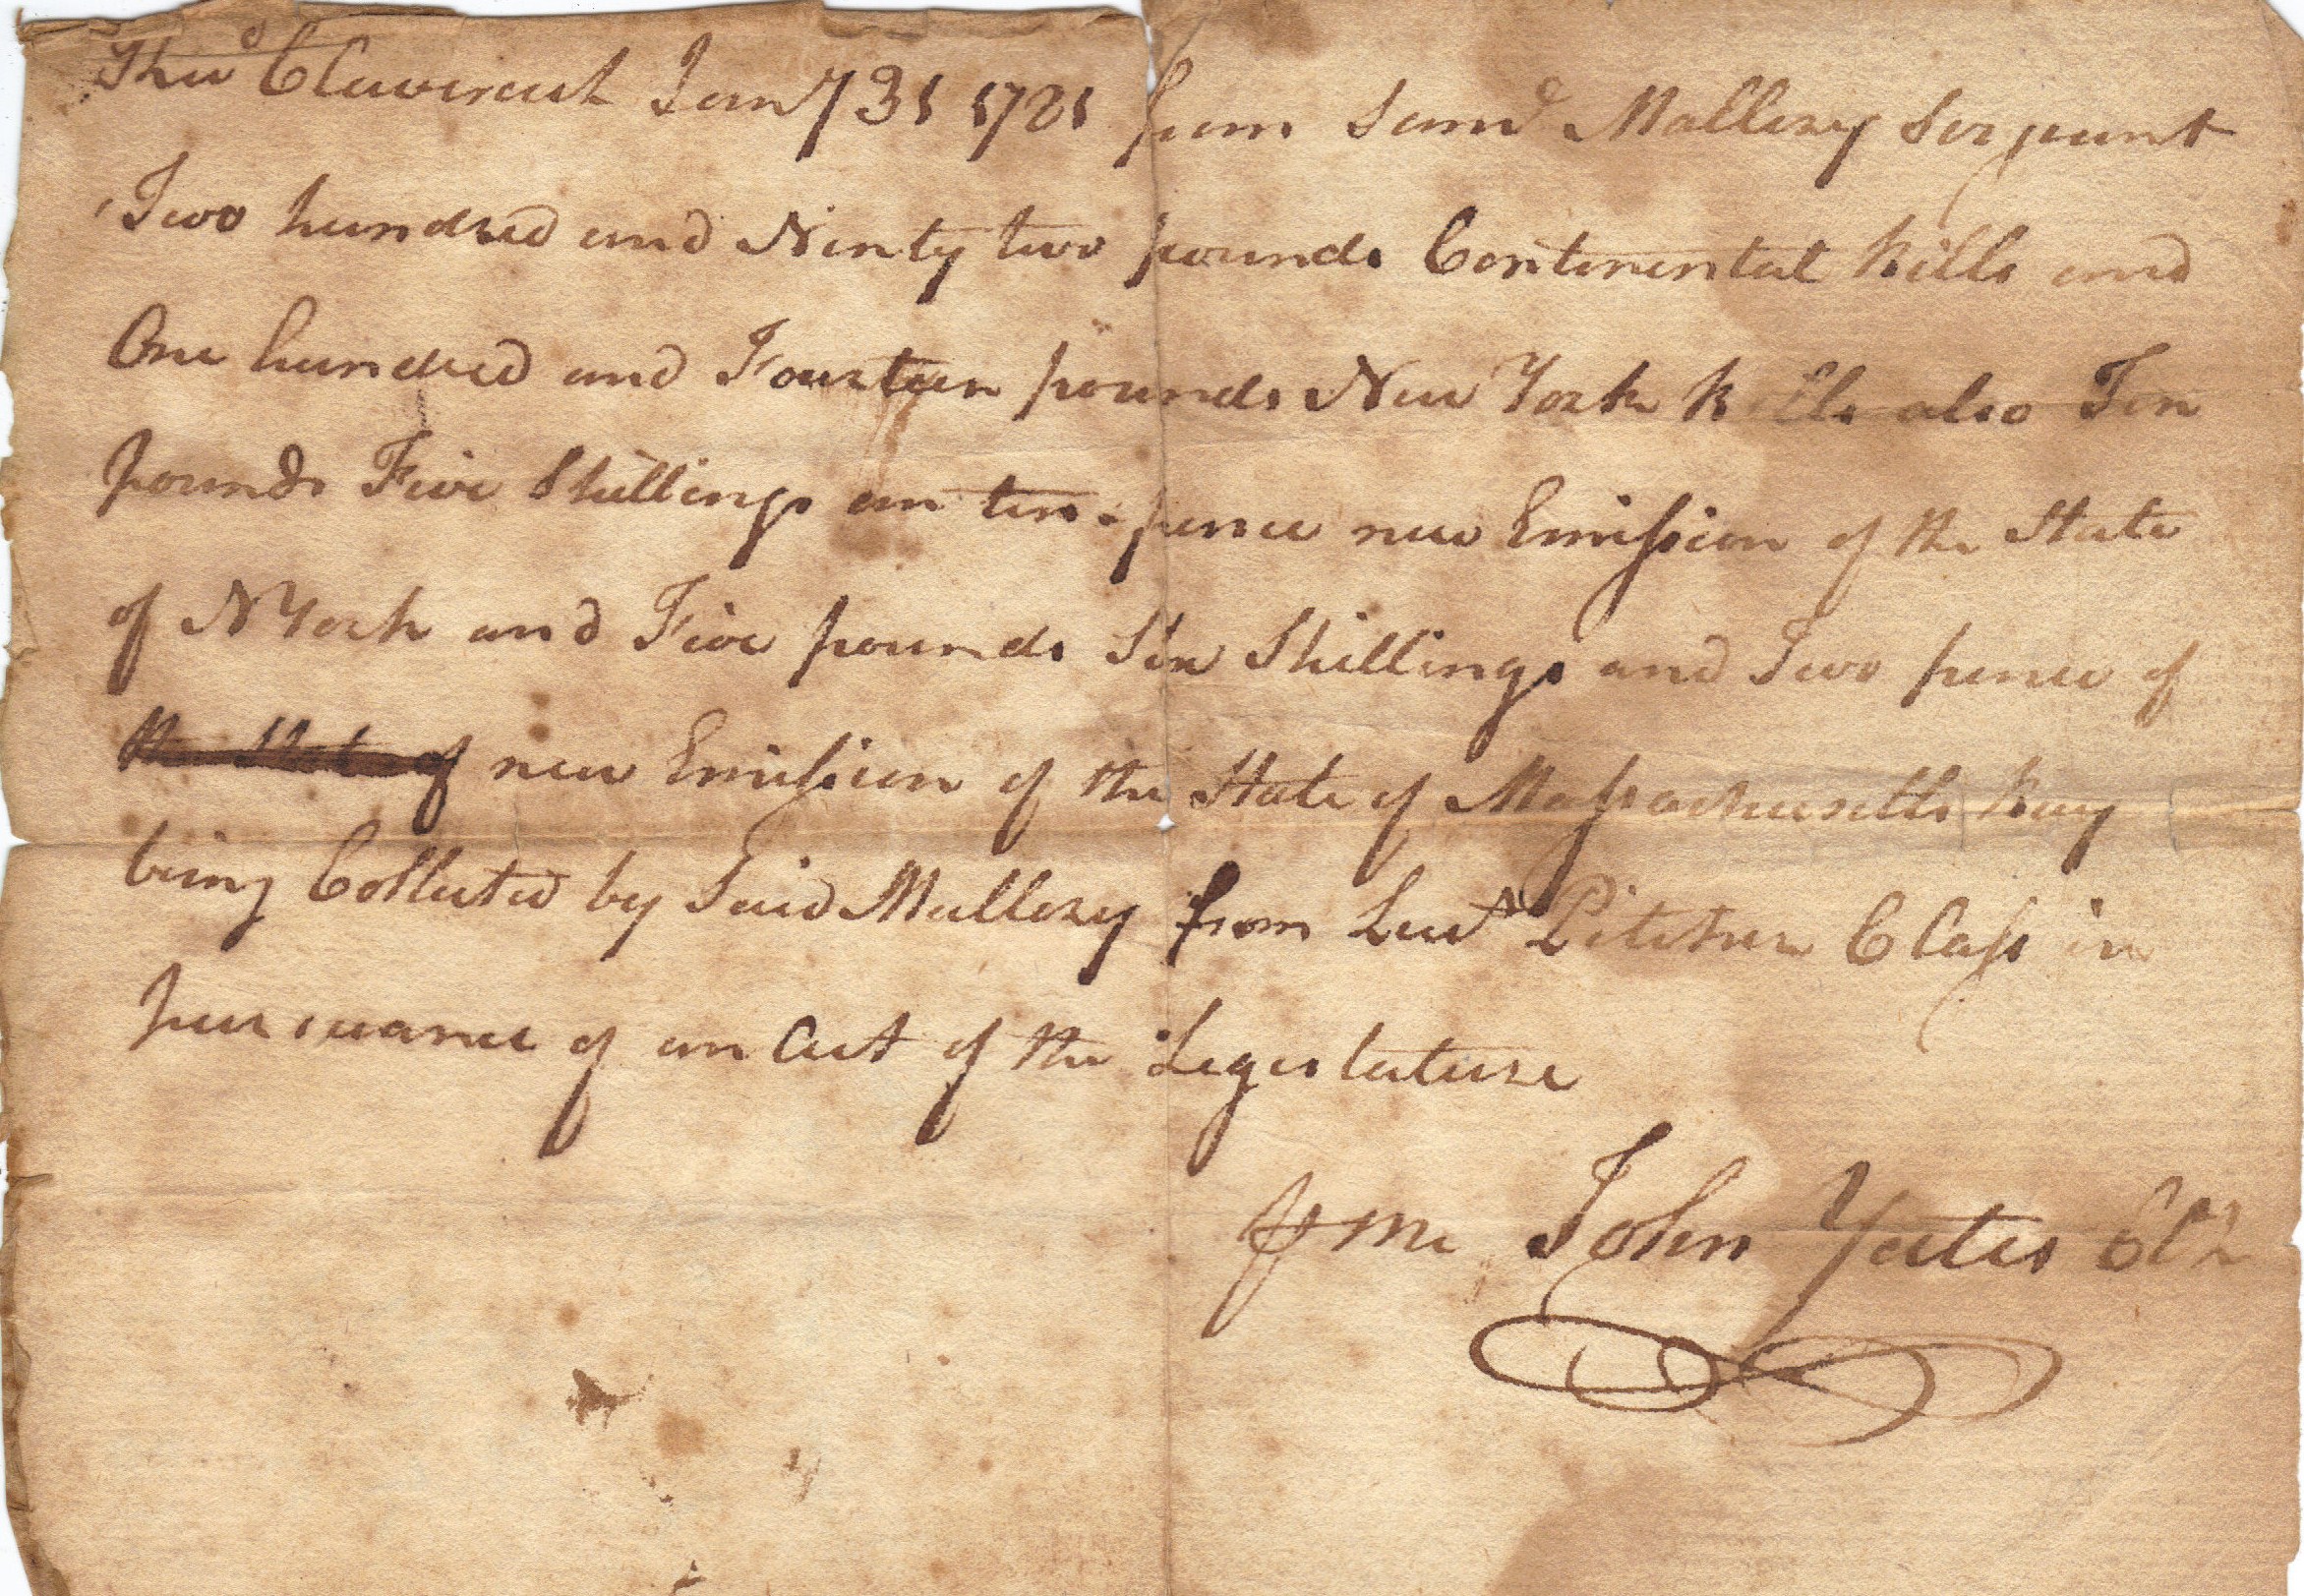 Claverack Jany 31 1781 from Saml Mallery Serjeant
Two hundred and Ninty two pounds Continental bills and
One hundred and Fourteen pounds New York bills also Ten
pounds Five Shillings an ten pence new Emission of the State
of N York and Five pounds Six Shillings and Two pence of
the State of new Emission of the State of Massachusetts Bay
being Collected by Said Mallery from Lewt Pitcher Class in
pursuance of an Act of the Legislature
pr me John Yates